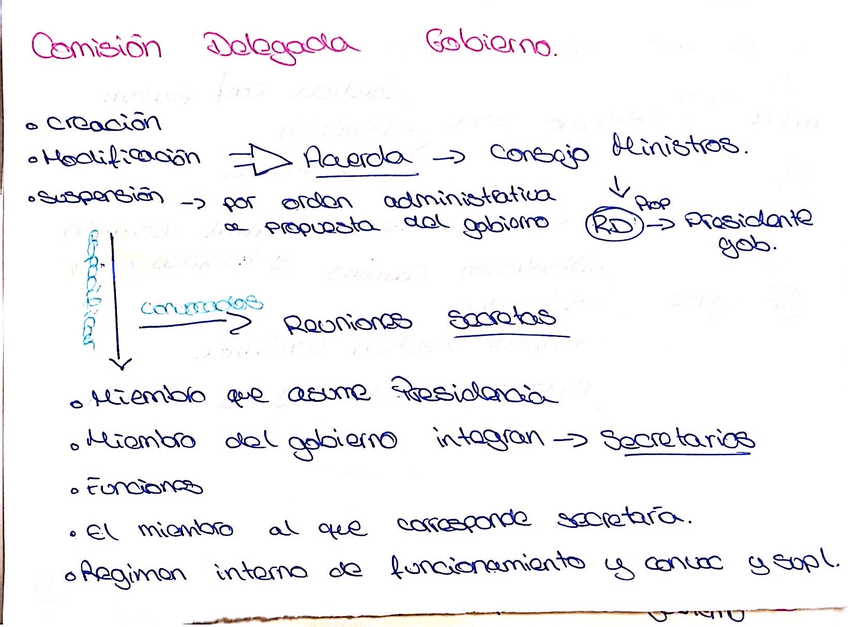 Comisión Delegada Gobierno.
• Creación
• Modificación ⇒ Acuerda → Consejo Ministros.
• Suspensión → por orden administrativa
a propuesta del gobierno
RD → Prop Presidente
gob.
especificar
convocados → Reuniones Secretas
• Miembro que asume Presidencia
• Miembro del gobierno integran → Secretarios
• Funciones
• El miembro al que corresponde secretaría.
• Regimen interno de funcionamiento y convoc y supl.